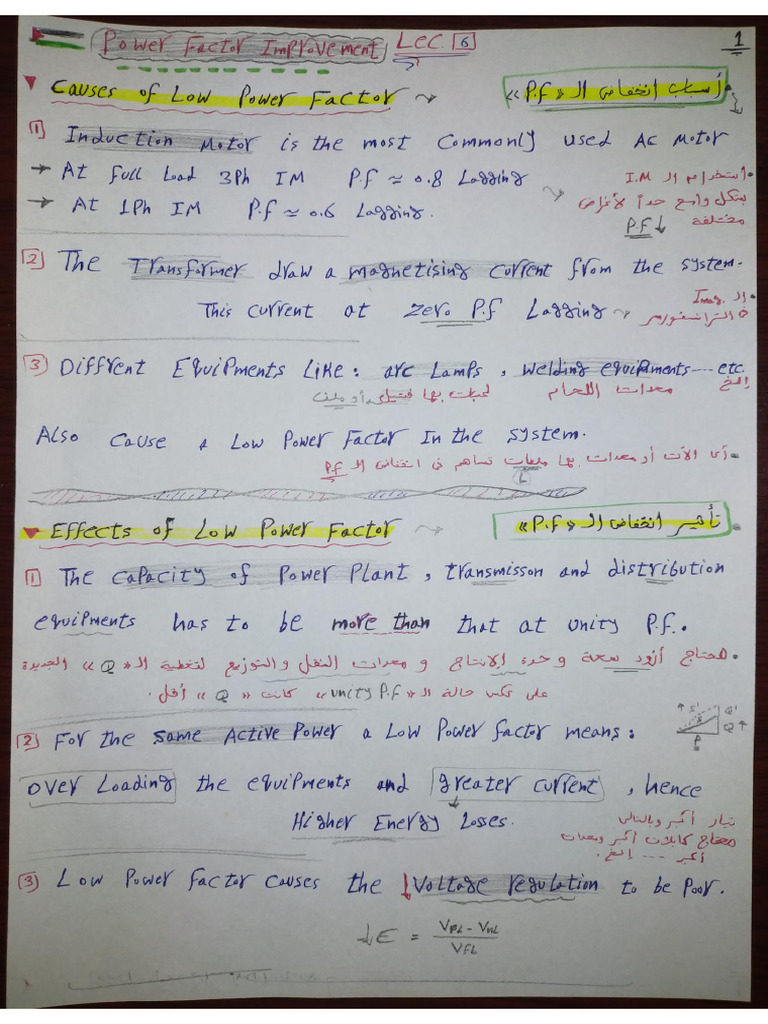 Power Factor Improvement Lec. 6
1
Causes of Low Power Factor
أسباب انخفاض الـ «P.f»
1 Induction Motor is the most commonly used AC Motor
→ At full Load 3Ph IM P.f ≈ 0.8 Lagging
→ At 1Ph IM P.f ≈ 0.6 Lagging.
استخدام الـ I.M
بشكل واسع جداً لأغراض
مختلفة P.f↓
2 The Transformer draw a magnetising current from the system.
This current at Zero P.f Lagging
الـ Imag.
الترانسفورمر
3 Diffrent Equipments Like: arc Lamps, welding equipments --- etc.
لمبات بها فتيلة أو ملف معدات اللحام إلخ
Also cause a Low Power Factor In the system.
أى آلات أو معدات بها ملفات تساهم فى انخفاض الـ P.f
(L)
Effects of Low Power Factor
تأثير انخفاض الـ «P.f»
1 The capacity of Power Plant, transmisson and distribution
equipments has to be more than that at unity P.f.
هحتاج أزود سعة وحدة الإنتاج و معدات النقل والتوزيع لتغطية الـ «Q» الجديدة
على عكس حالة الـ «unity P.f» كانت «Q» أقل.
2 For the same Active Power a Low Power factor means:
S' Q' Q↑ P
over Loading the equipments and greater current, hence
Higher Energy Losses.
تيار أكبر وبالتالى
محتاج كابلات أكبر ومعدات
أكبر --- إلخ.
3 Low Power Factor causes the ↓Voltage regulation to be Poor.
↓E = VFL - VNL / VFL